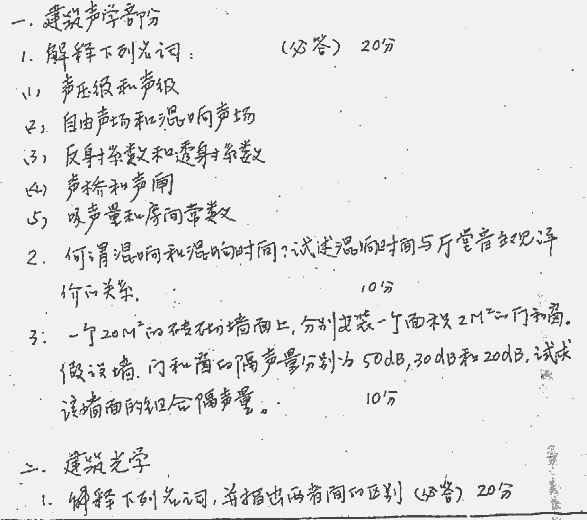 一. 建筑声学部份
1. 解释下列名词: (必答) 20分
(1) 声压级和声级
(2) 自由声场和混响声场
(3) 反射系数和透射系数
(4) 声桥和声闸
(5) 吸声量和房间常数
2. 何谓混响和混响时间?试述混响时间与厅堂音主观评
价的关系. 10分
3. 一个20M²的砖砌墙面上,分别安装一个面积2M²的门和窗。
假设墙、门和窗的隔声量分别为50dB,30dB和20dB,试求
该墙面的组合隔声量。 10分
二. 建筑光学
1. 解释下列名词,并指出两者间的区别 (必答) 20分